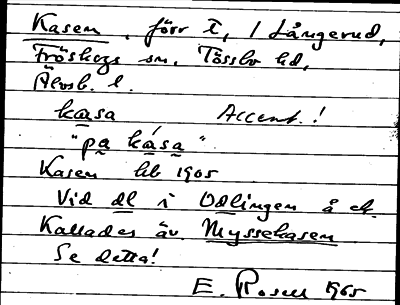 Kasen, förr T, / Långerud,
Fröskogs sn. Tössbo hd,
Älvsb. l.
kasa Accent.!
"pa kása".
Kasen hb 1905
Vid dl i Ödlingen å ek.
Kallades äv. Myssekasen
Se detta!
E. Rosell 1965